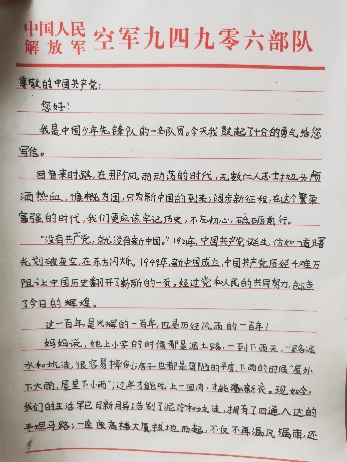 中国人民
解放军 空军九四九零六部队
尊敬的中国共产党：
您好！
我是中国少年先锋队的一名队员。今天我鼓起了十分的勇气给您
写信。
回首来时路，在那个风雨动荡的时代，无数仁人志士抛头颅
洒热血，慷慨为国，只为新中国的到来；阔步新征程，在这个繁荣
富强的时代，我们更应该牢记历史，不忘初心，砥砺前行。
“没有共产党，就没有新中国。”1921年，中国共产党诞生，仿如一道曙
光划破夜空，在东方闪烁。1949年，新中国成立，中国共产党历经千难万
阻让中国历史翻开了崭新的一页。经过党和人民的共同努力，创造
了今日的辉煌。
这一百年是光辉的一百年，也是历经风雨的一百年！
妈妈说，她上小学的时候都是泥土路，一到下雨天，
水和坑洼，很容易摔倒；房子也都是简陋的平房，下雨的时候“屋外
下大雨，屋里下小雨”；过年才能吃上一回肉，才能新衣。现如今，
我们的生活早已日新月异：告别了泥泞和坑洼，拥有了四通八达的
平坦马路；一座座高楼大厦拔地而起，不仅不再漏风漏雨，还